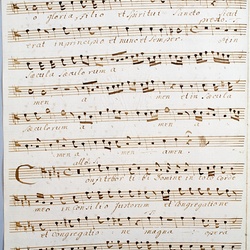 o gloria filio et spiritui sancto sicut
erat in principio et nunc et semper
saecula saeculorum a
men a men et in saecula
saeculorum a
men a men amen
Confitebor tibi Domine in toto corde
meo in consilio justorum et congregatione
et congregatio ne magna opera